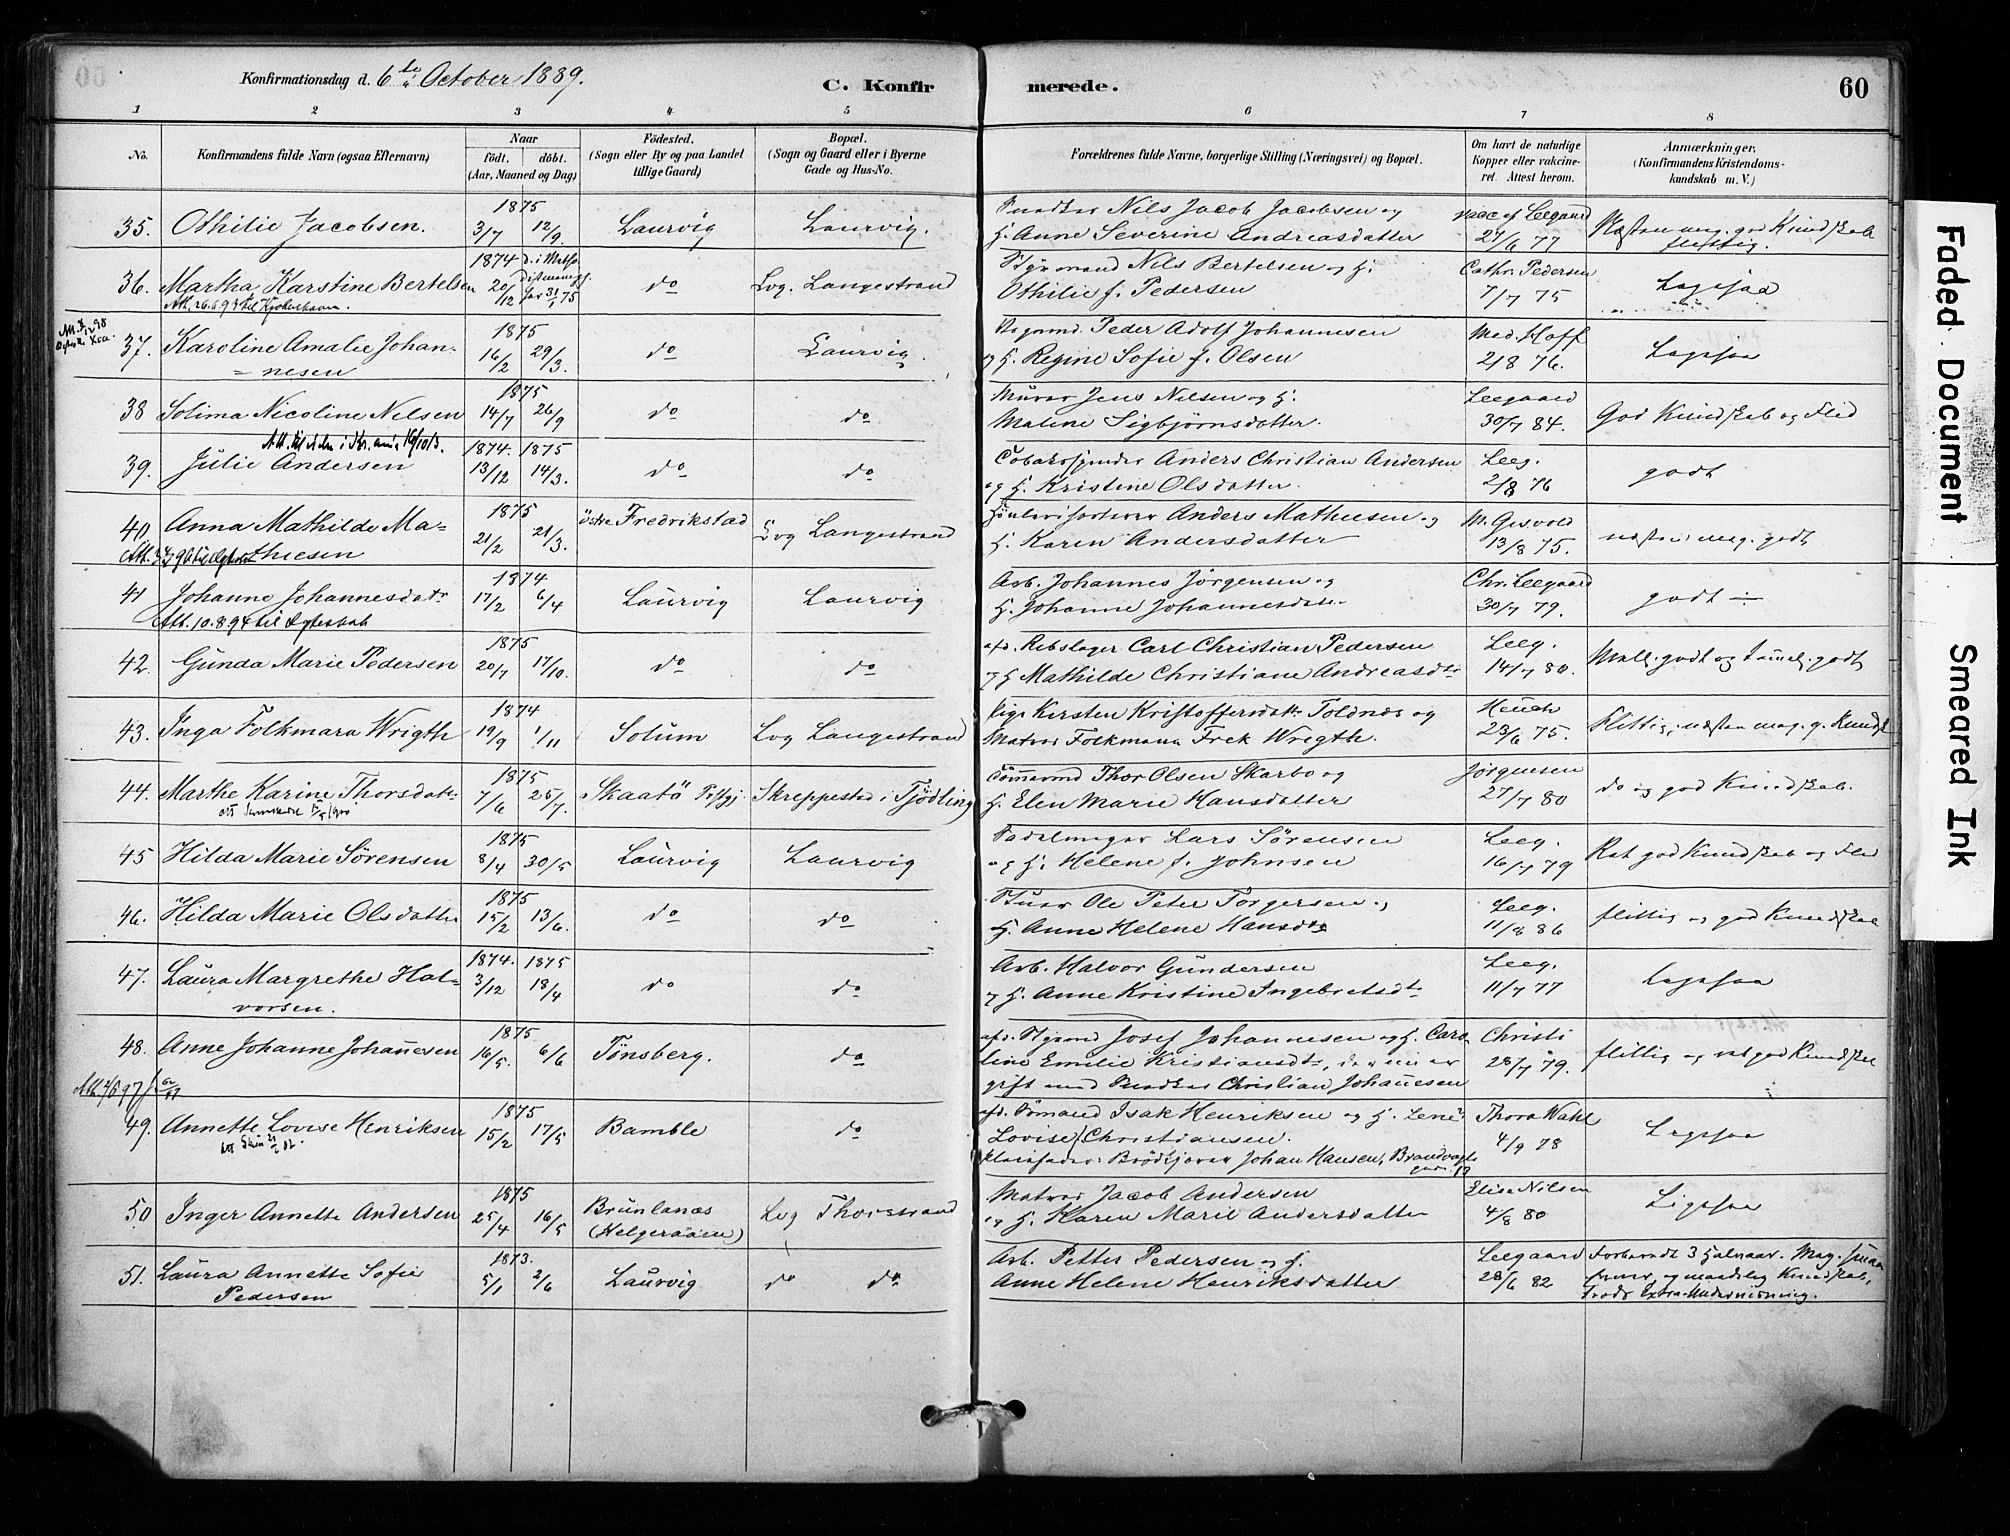 Konfirmationsdag d. 6te October 1889.
C. Konfirmerede.
60
1 2 3 4 5 6 7 8
No.
Konfirmandens fulde Navn (ogsaa Efternavn)
Naar
født. døbt.
(Aar, Maaned og Dag)
Fødested.
(Sogn eller By og paa Landet
tillige Gaard)
Bopæl.
(Sogn og Gaard eller i Byerne
Gade og Hus-No.
Forældrenes fulde Navne, borgerlige Stilling (Næringsvei) og Bopæl.
Om havt de naturlige
Kopper eller vakcine-
ret. Attest herom.
Anmærkninger,
(Konfirmandens Kristendoms-
kundskab m. V.)
1875
35. Othilie Jacobsen. 3/7 12/9. Laurvig Laurvig.
Nils Jacob Jacobsen og
H. Anne Severine Andreasdatter
vacc af Leegaard
27/6 77
Næsten mag. god Kundskab
flittig.
1874
36. Martha Karstine Bertelsen 20/12 do Lvg. Langestrand
Att. 26.6.93 til Kjøbenhavn.
Styrmand Nils Bertelsen og H.
Othilie f. Pedersen
Cathr. Pedersen
7/7 75
Ligesaa
1875
37. Karoline Amalie Johan-
nesen 16/2 29/3. do Laurvig.
Peder Adolf Johannesen
og H. Regine Sofie f. Olsen
Mad. Hoff
2/8 76.
Ligesaa
1875
38 Solima Nicoline Nelsen 14/7 26/9 do do
Murer Jens Nilsen og H.
Maline Sigbjørnsdatter.
Leegaard
30/7 84.
God Kundskab og Flid
1874. 1875
39. Julie Andersen 13/12 14/3. do do
Tobaksspinder Anders Christian Andersen
og H. Kristine Olsdatter.
Leeg.
2/8 76
godt
1875
40. Anna Mathilde Ma-
thiesen 21/2 21/3. Østre Fredrikstad Lvg Langestrand
Anders Mathiesen og
H. Karen Andersdatter
M. Gisvold
13/8 75.
næsten mag. godt
1874
41 Johanne Johannesdatr 17/2 6/4 Laurvig Laurvig
Att. 10.8.94 til Egteskab
Arb. Johannes Jørgensen og
H. Johanne Johannesdatr
Chr. Leegaard
30/7 79.
godt
1875
42. Gunda Marie Pedersen 20/7 17/10. do do
afd. Rebslager Carl Christian Pedersen
og H Mathilde Christiane Andreasdtr
Leeg.
14/7 80.
Mell. godt og temel. godt
1874
43. Inga Folkmara Wrigth 19/9 1/11 Solum Lvg Langestrand
Pige Kirsten Kristoffersdatr Toldnæs og
Matros Folkmann Frek Wrigth.
Heuch
23/6 75.
Flittig, næsten mag. g. Kundsk
1875
44. Marthe Karine Thorsdatr 7/6 25/7. Skaatø Skreppestad i Tjødling
Tømmermd Thor Olsen Skarbo og
H. Elen Marie Hansdatter
Jørgensen
27/7 80
do og god Kundskab.
1875
45 Hilda Marie Sørensen 8/4 30/5 Laurvig Laurvig
Sadelmager Lars Sørensen
og H. Helene f. Johnsen
Leeg.
16/7 79
Ret god Kundskab og Flid
1875
46. Hilda Marie Olsdatter 15/2 13/6. do do
Stuer Ole Peter Torgersen og
H. Anne Helene Hansdtr
Leeg.
11/8 86
flittig og god Kundskab
1874. 1875
47. Laura Margrethe Hal-
vorsen. 3/12 18/4 do do
Arb. Halvor Gundersen
og H. Anne Kristine Ingebretsdtr
Leeg.
11/7 77
Ligesaa
1875
48. Anne Johanne Johannesen 16/5. 6/6 Tønsberg. do
afd. Styrmd Josef Johannesen og H. Caro-
line Emilie Kristiansdtr, der nu er
gift med Christian Johannesen
Christi
28/7 79.
flittig og ret god Kundskab
1875
49. Annette Lovise Henriksen 15/2 17/5 Bamble do
afd. Sømand Isak Henriksen og H. Lene
Lovise Christiansen.
Pleiefader: Brødkjører Johan Hansen, Brandvagts
gade 13
Thora Wahl
4/9 78
Ligesaa
1875
50 Inger Annette Andersen 25/4 16/5 Brunlanæs
(Helgeraaen) Lvg Thorstrand
Matros Jacob Andersen
og H. Karen Marie Andersdatter
Elise Nilsen
4/8 80
Ligesaa
1873.
51. Laura Annette Sofie
Pedersen 5/1 2/6 Laurvig do do
Arb. Petter Pedersen og H.
Anne Helene Henriksdatter
Leegaard
28/6 82
Forberedt 3 Halvaar. Mag. smaa
Evner og maadelig Kundskab,
Trods Extra-Undervisning.
Faded Document
Smeared Ink